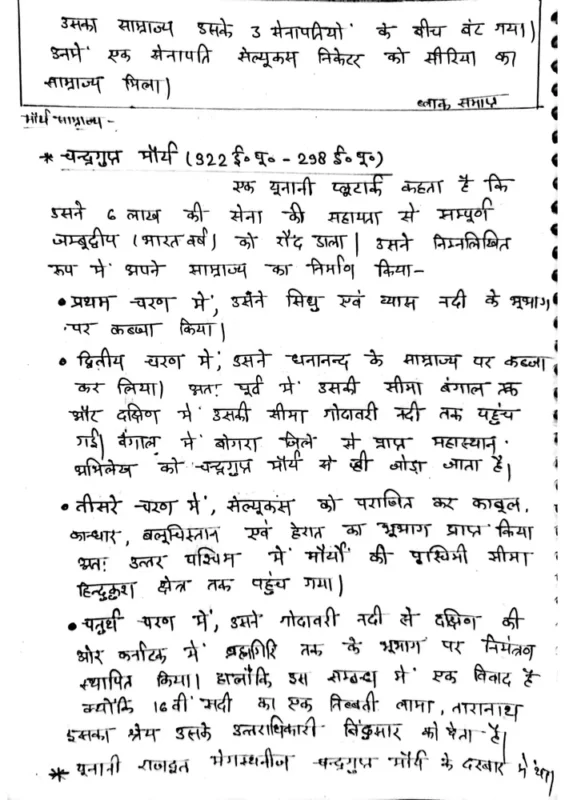 उसका साम्राज्य उसके 3 सेनापतियों के बीच बंट गया।
उनमें एक सेनापति सेल्यूकस निकेटर को सीरिया का
साम्राज्य मिला।
ब्लाक समाप्त
मौर्य साम्राज्य -
* चन्द्रगुप्त मौर्य (322 ई॰ पू॰ - 298 ई॰ पू॰)
एक यूनानी प्लूटार्क कहता है कि
उसने 6 लाख की सेना की सहायता से सम्पूर्ण
जम्बूद्वीप (भारतवर्ष) को रौंद डाला। उसने निम्नलिखित
रूप में अपने साम्राज्य का निर्माण किया-
• प्रथम चरण में, उसने सिंधु एवं व्यास नदी के भूभाग
पर कब्जा किया।
• द्वितीय चरण में, उसने धनानन्द के साम्राज्य पर कब्जा
कर लिया। अतः पूर्व में उसकी सीमा बंगाल तक
और दक्षिण में उसकी सीमा गोदावरी नदी तक पहुंच
गई। बंगाल में बोगरा जिले से प्राप्त महास्थान
अभिलेख को चन्द्रगुप्त मौर्य से ही जोड़ा जाता है।
• तीसरे चरण में, सेल्यूकस को पराजित कर काबुल,
कान्धार, बलूचिस्तान एवं हेरात का भूभाग प्राप्त किया
अतः उत्तर पश्चिम में मौर्यों की पश्चिमी सीमा
हिन्दुकुश क्षेत्र तक पहुंच गया।
• चतुर्थ चरण में, उसने गोदावरी नदी से दक्षिण की
ओर कर्नाटक में ब्रह्मगिरि तक के भूभाग पर नियंत्रण
स्थापित किया। हालाँकि इस सम्बन्ध में एक विवाद है
क्योंकि 16 वीं सदी का एक तिब्बती लामा, तारानाथ
इसका श्रेय उसके उत्तराधिकारी बिंदुसार को देता है।
* यूनानी राजदूत मेगस्थनीज चन्द्रगुप्त मौर्य के दरबार में था।